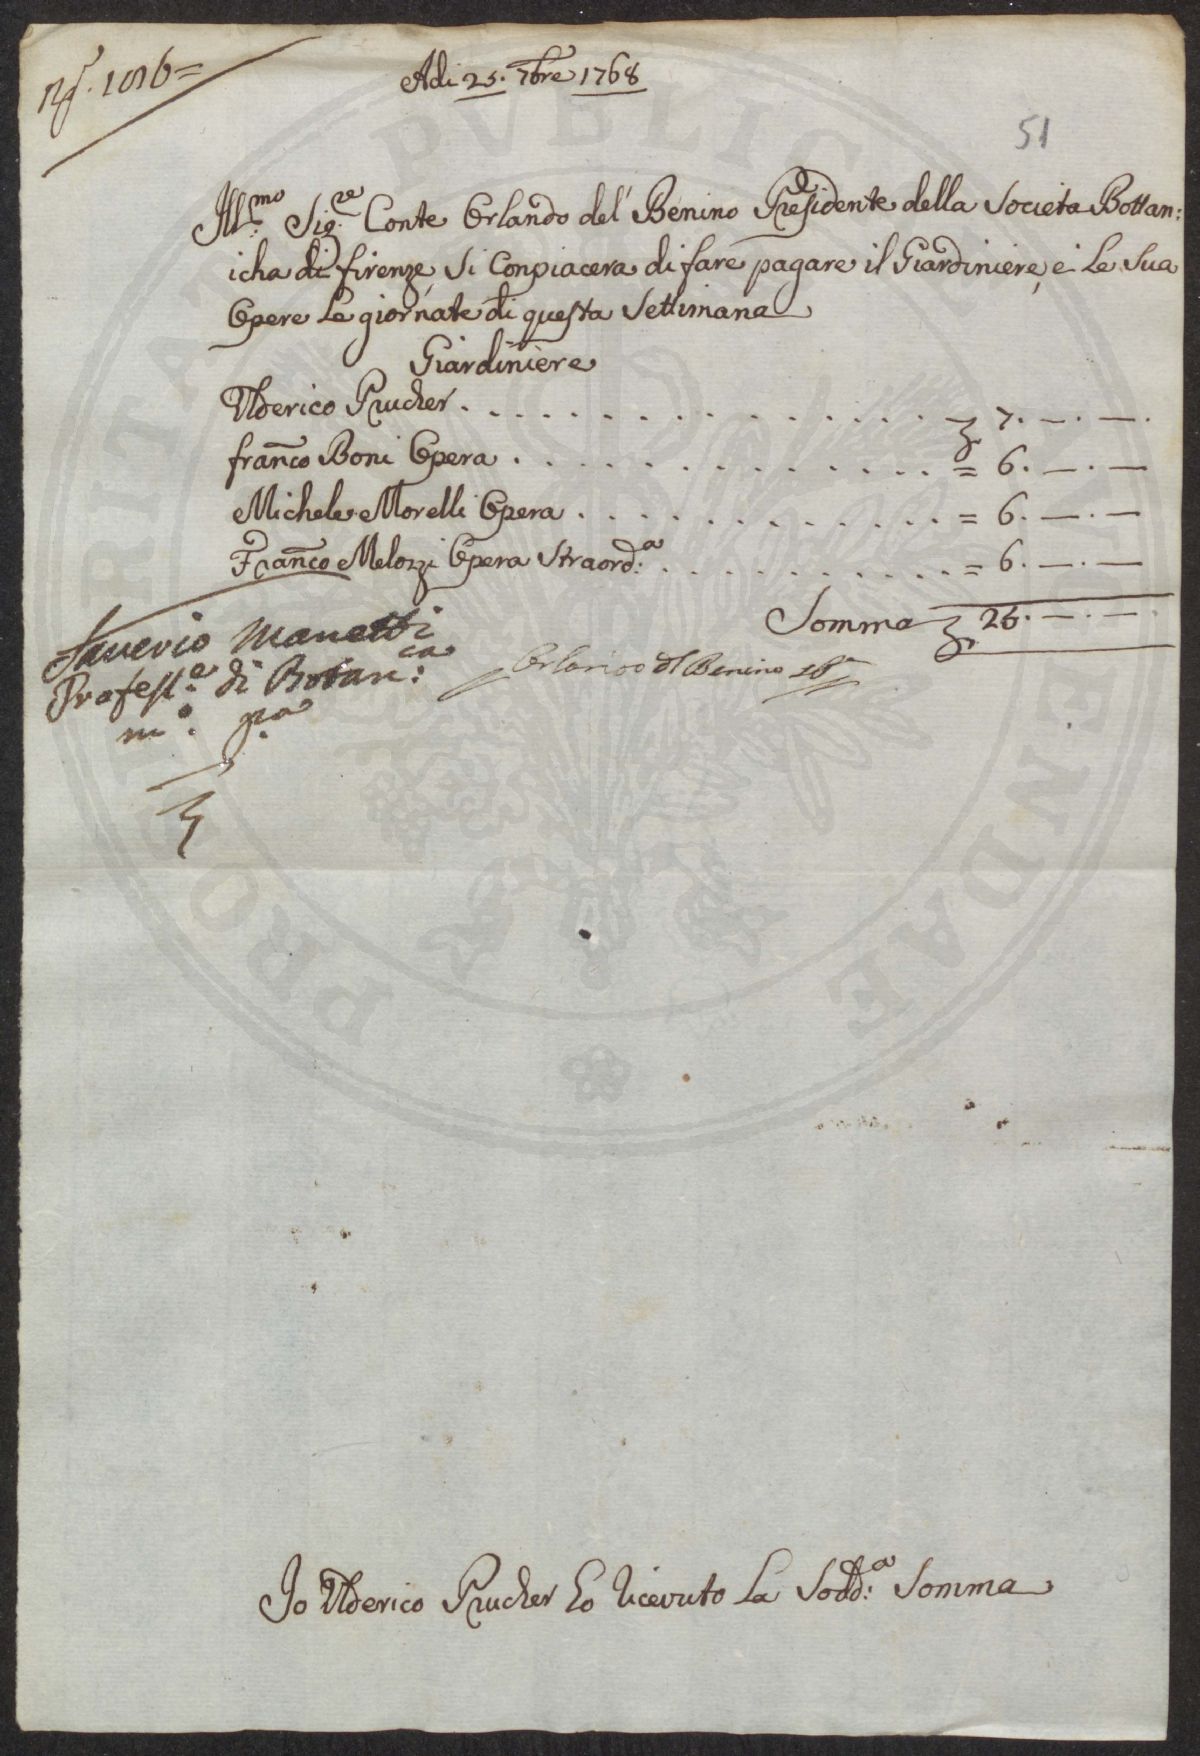 N.º 1016=
Adi 25. 7bre 1768
51
Ill.mo Sig.re Conte Orlando del Benino Presidente della Societa Bottan:
icha di firenze, Si Conpiacera di fare pagare il Giardiniere, e Le Sua
Opere Le giornate di questa Settimana
Giardiniere
Ulderico Prucher . . . . . . . . . . . . . . 7. —. —.
franco Boni Opera . . . . . . . . . . . . . = 6. —. —
Michele Morelli Opera . . . . . . . . . . . = 6. —. —
Franco Melozzi Opera Straord:a . . . . . . . . . = 6. —. —
Somma 25. —. —.
Saverio Manetti
Profess.e di Botan:ca
m.o p.a
Orlando del Benino
Io Ulderico Prucher ho ricevuto La Sodd:a Somma
PROSPERITATI PVBLICAE AVGENDAE